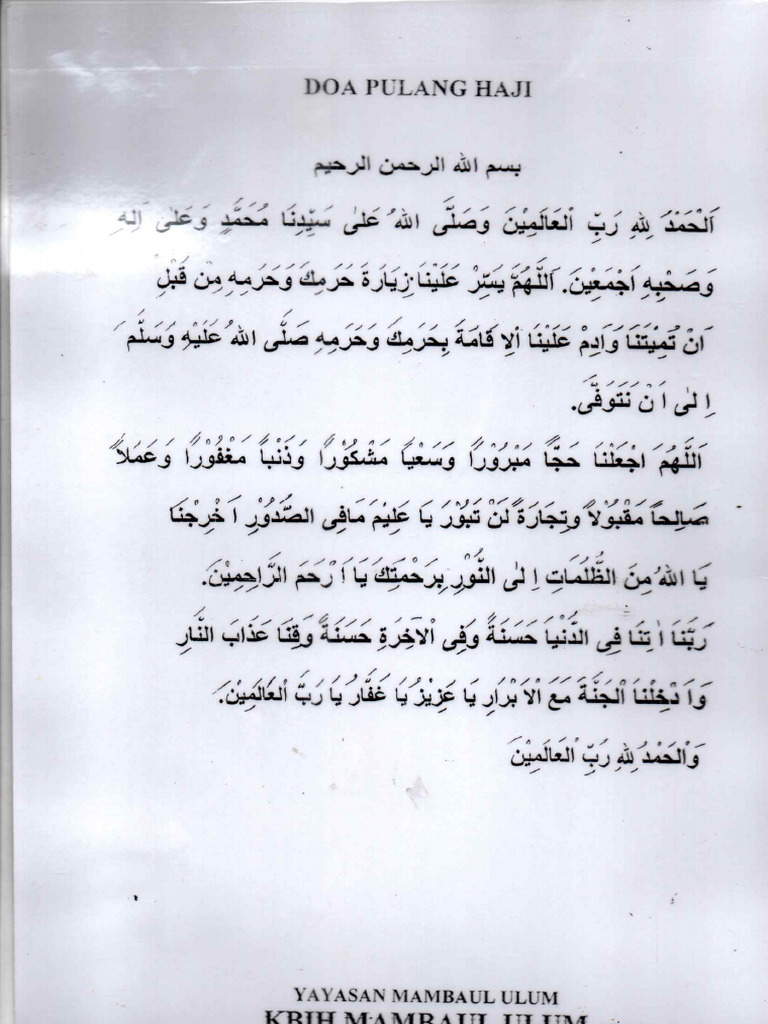 DOA PULANG HAJI
بسم الله الرحمن الرحيم
اَلْحَمْدَ لِلهِ رَبِّ الْعَالَمِيْنَ وَصَلَّى اللهُ عَلىٰ سَيِّدِنَا مُحَمَّدٍ وَعَلىٰ اٰلِهِ
وَصَحْبِهِ اَجْمَعِيْنَ. اَللَّهُمَّ يَسِّرْ عَلَيْنَا زِيَارَةَ حَرَمِكَ وَحَرَمِهِ مِنْ قَبْلِ
اَنْ تُمِيْتَنَا وَاَدِمْ عَلَيْنَا اْلاِ قَامَةَ بِحَرَمِكَ وَحَرَمِهِ صَلَّى اللهُ عَلَيْهِ وَسَلَّمَ
اِلٰى اَنْ نَتَوَفَّى.
اَللَّهُمَ اجْعَلْنَا حَجًّا مَبْرُوْرًا وَسَعْياً مَشْكُوْرًا وَذَنْباً مَغْفُوْرًا وَعَمَلاً
صَالِحاً مَقْبُوْلاً وَتِجَارَةً لَنْ تَبُوْرَ يَا عَلِيْمَ مَافِى الصُّدُوْرِ اَخْرِجْنَا
يَا اللهُ مِنَ الظُّلُمَاتِ اِلٰى النُّوْرِ بِرَحْمَتِكَ يَا اَرْحَمَ الرَّاحِمِيْنَ.
رَبَّنَا اٰتِنَا فِى الدُّنْيَا حَسَنَةً وَفِى اْلآخِرَةِ حَسَنَةً وَقِنَا عَذَابَ النَّارِ
وَاَدْخِلْنَا الْجَنَّةَ مَعَ اْلاَبْرَارِ يَا عَزِيْزُ يَا غَفَّارُ يَا رَبَّ الْعَالَمِيْنَ.
وَالْحَمْدُ لِلهِ رَبِّ الْعَالَمِيْنَ
YAYASAN MAMBAUL ULUM
KBIH MAMBAUL ULUM